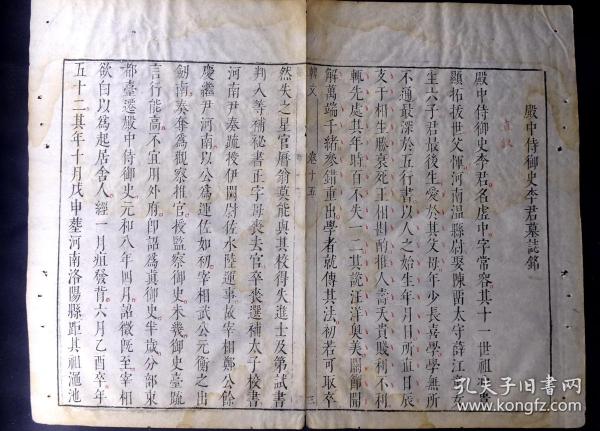 殿中侍御史李君墓誌銘
殿中侍御史李君名虛中字常容其十一世祖冲貴
顯拓拔世父惲河南溫縣尉娶陳留太守薛江童女
生六子君最後生愛於其父母年少長喜學學無所
不通最深於五行書以人之始生年月日所直日辰
支干相生勝衰死王相斟酌推人壽夭貴賤利不利
輒先處其年時百不失一二其說汪洋奧美關節開
解萬端千緒參錯重出學者就傳其法初若可取卒
韓文 卷十五 三
然失之星官曆翁莫能與其校得失進士及第試書
判入等補秘書正字母喪去官卒喪選補太子校書
河南尹奏疏授伊闕尉佐水陸運事故宰相鄭公餘
慶繼尹河南以公爲運佐如初宰相武公元衡之出
劍南奏奪爲觀察推官授監察御史未幾御史臺疏
言行能高不宜用外府卽詔爲眞御史半歲分部東
都臺遷殿中侍御史元和八年四月詔徵旣至宰相
欲白以爲起居舍人經一月疽發背六月乙酉卒年
五十二其年十月戊申葬河南洛陽縣距其祖澠池
孔夫子旧書网
www.kongfz.com